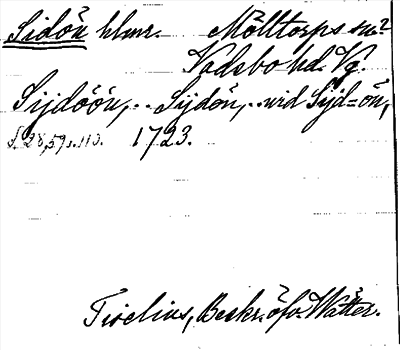 Sidön hlmr. Mölltorps sn?
Vadsbo hd. Vg.
Sijdöön, .. Sijdön, .. wid Sijd=ön,
S. 28, 59, s. 110. 1723.
Tiselius, Beskr. öfv. Wätter.